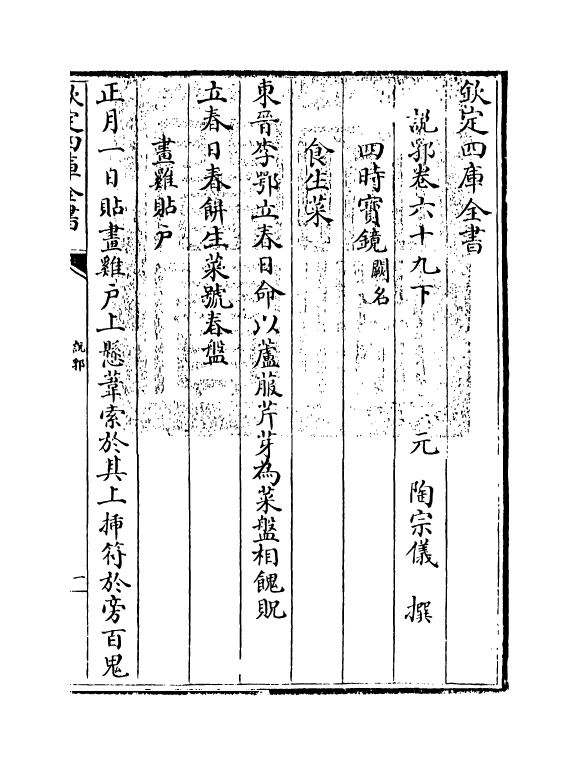 欽定四庫全書
說郛卷六十九下　元　陶宗儀　撰
四時寳鏡闕名
食生菜
東晉李鄂立春日命以蘆菔芹芽為菜盤相餽貺
立春日春餅生菜號春盤
畫雞貼户
正月一日貼畫雞户上懸葦索於其上揷符於旁百鬼
欽定四庫全書
說郛